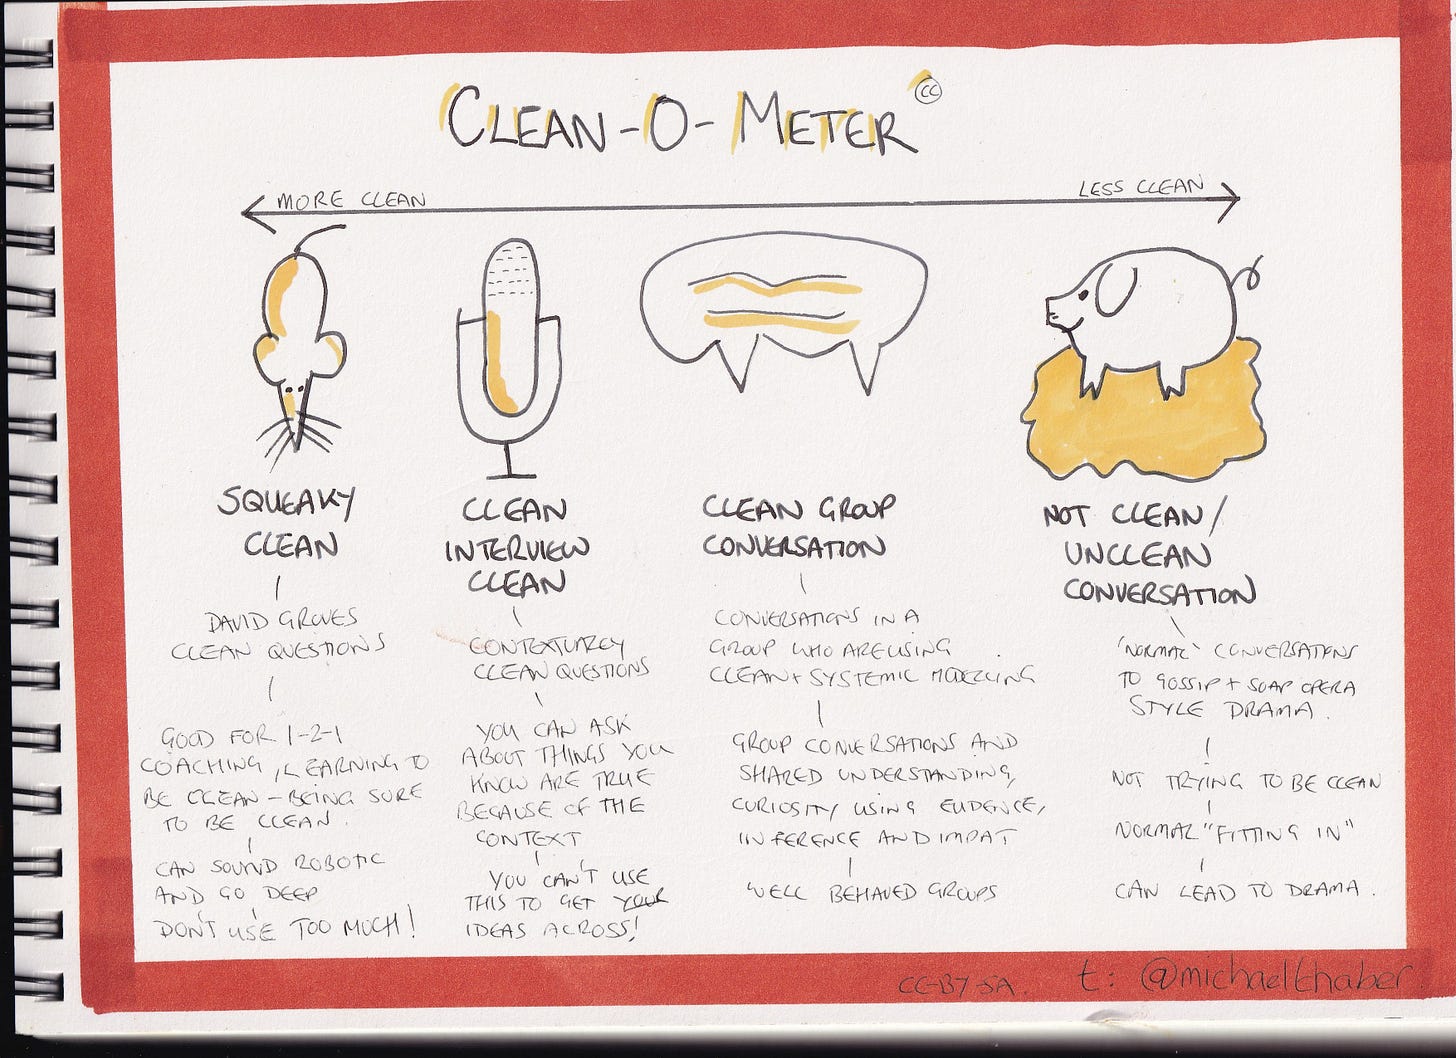 CLEAN-O-METER
CC
MORE CLEAN
LESS CLEAN
SQUEAKY
CLEAN
DAVID GROVES
CLEAN QUESTIONS
GOOD FOR 1-2-1
COACHING, LEARNING TO
BE CLEAN - BEING SURE
TO BE CLEAN.
CAN SOUND ROBOTIC
AND GO DEEP
DON'T USE TOO MUCH!
CLEAN
INTERVIEW
CLEAN
CONTEXTUALLY
CLEAN QUESTIONS
YOU CAN ASK
ABOUT THINGS YOU
KNOW ARE TRUE
BECAUSE OF THE
CONTEXT
YOU CAN'T USE
THIS TO GET YOUR
IDEAS ACROSS!
CLEAN GROUP
CONVERSATION
CONVERSATIONS IN A
GROUP WHO ARE USING
CLEAN + SYSTEMIC MODELLING
GROUP CONVERSATIONS AND
SHARED UNDERSTANDING,
CURIOSITY USING EVIDENCE,
INFERENCE AND IMPAT
WELL BEHAVED GROUPS
NOT CLEAN/
UNCLEAN
CONVERSATION
'NORMAL' CONVERSATIONS
TO GOSSIP + SOAP OPERA
STYLE DRAMA.
NOT TRYING TO BE CLEAN
NORMAL "FITTING IN"
CAN LEAD TO DRAMA.
CC-BY-SA.
t: @michaelthaber